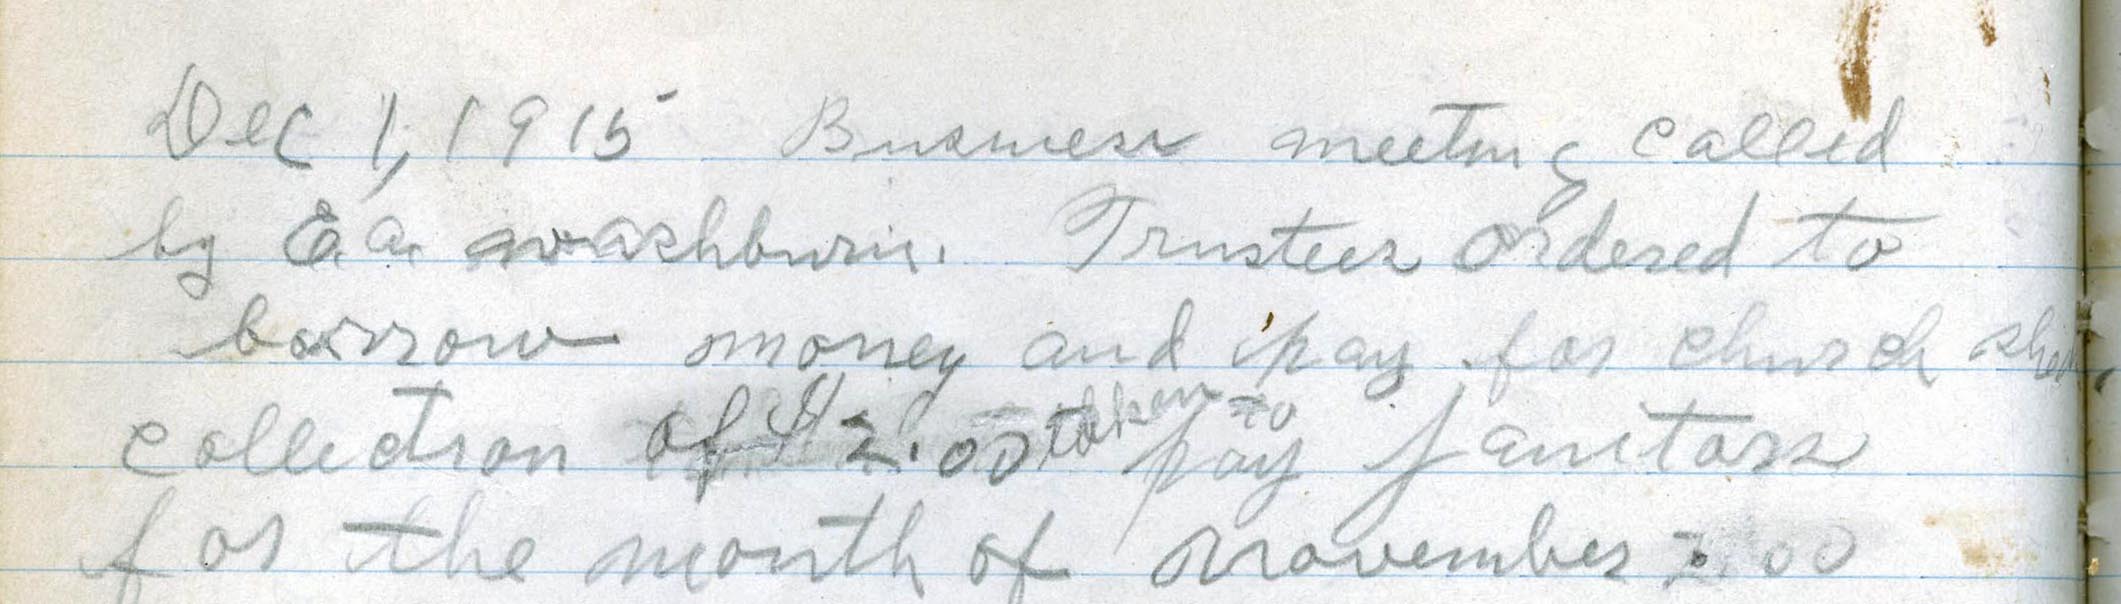 Dec 1, 1915 Business meeting called
by E. a. washburn. Trustees ordered to
borrow money and pay for church shed,
collection of $2.00 taken to pay janitors
for the month of november 2.00